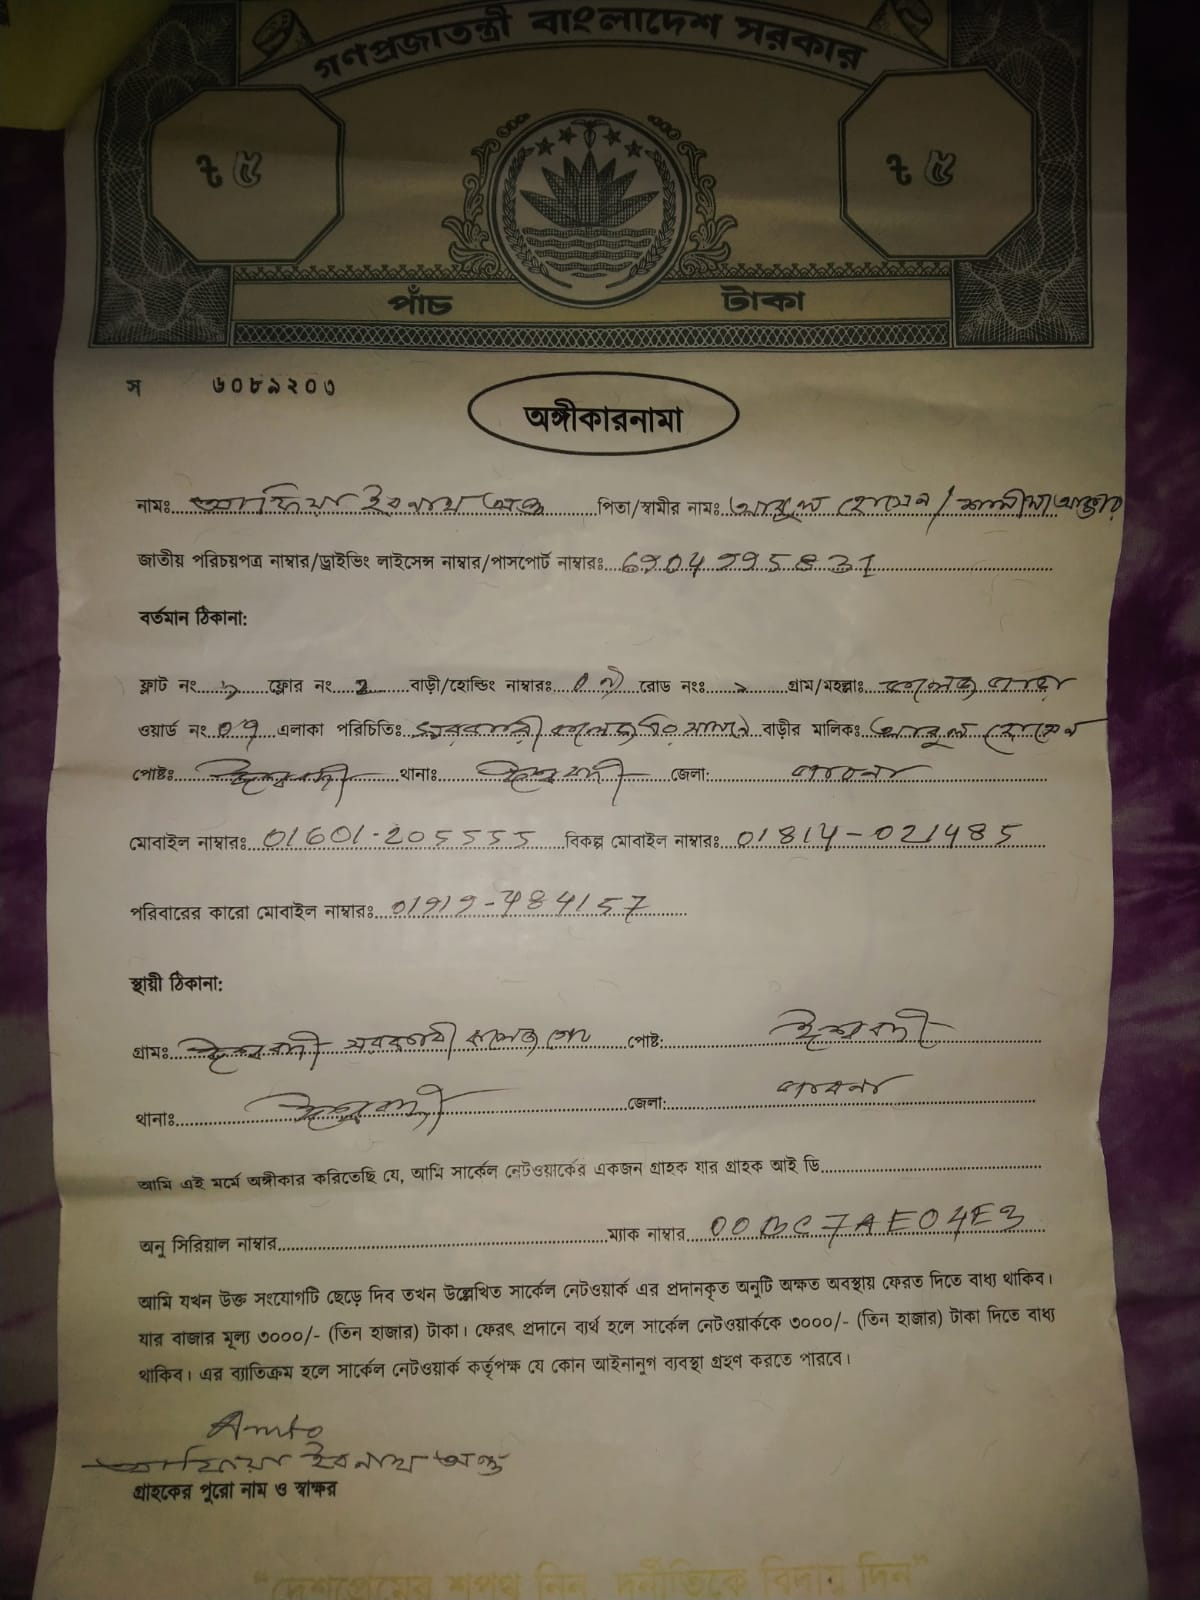 গণপ্রজাতন্ত্রী বাংলাদেশ সরকার
ট ৫ ট ৫
পাঁচ টাকা
স ৬০৮৯২০৩
অঙ্গীকারনামা
নামঃ আফিয়া ইবনাথ অন্তু পিতা/স্বামীর নামঃ আবুল হোসেন / শামীমা আক্তার
জাতীয় পরিচয়পত্র নাম্বার/ড্রাইভিং লাইসেন্স নাম্বার/পাসপোর্ট নাম্বারঃ 6904995831
বর্তমান ঠিকানা:
ফ্লাট নং ফ্লোর নং 2 বাড়ী/হোল্ডিং নাম্বারঃ রোড নংঃ গ্রাম/মহল্লাঃ কলেজ পাড়া
ওয়ার্ড নং 07 এলাকা পরিচিতিঃ সরকারী কলেজ এর সামনে বাড়ীর মালিকঃ আবুল হোসেন
পোষ্টঃ ঈশ্বরদী থানাঃ ঈশ্বরদী জেলা: পাবনা
মোবাইল নাম্বারঃ 01601-205555 বিকল্প মোবাইল নাম্বারঃ 01814-021485
পরিবারের কারো মোবাইল নাম্বারঃ 01919-484157
স্থায়ী ঠিকানা:
গ্রামঃ ঈশ্বরদী সরকারী কলেজ গেট পোষ্ট: ঈশ্বরদী
থানাঃ ঈশ্বরদী জেলা: পাবনা
আমি এই মর্মে অঙ্গীকার করিতেছি যে, আমি সার্কেল নেটওয়ার্কের একজন গ্রাহক যার গ্রাহক আই ডি
অনু সিরিয়াল নাম্বার ম্যাক নাম্বার 00BC7AE04E3
আমি যখন উক্ত সংযোগটি ছেড়ে দিব তখন উল্লেখিত সার্কেল নেটওয়ার্ক এর প্রদানকৃত অনুটি অক্ষত অবস্থায় ফেরত দিতে বাধ্য থাকিব।
যার বাজার মূল্য ৩০০০/- (তিন হাজার) টাকা। ফেরৎ প্রদানে ব্যর্থ হলে সার্কেল নেটওয়ার্ককে ৩০০০/- (তিন হাজার) টাকা দিতে বাধ্য
থাকিব। এর ব্যাতিক্রম হলে সার্কেল নেটওয়ার্ক কর্তৃপক্ষ যে কোন আইনানুগ ব্যবস্থা গ্রহণ করতে পারবে।
Amto
আফিয়া ইবনাথ অন্তু
গ্রাহকের পুরো নাম ও স্বাক্ষর
"দেশপ্রেমের শপথ নিন, দুর্নীতিকে বিদায় দিন"